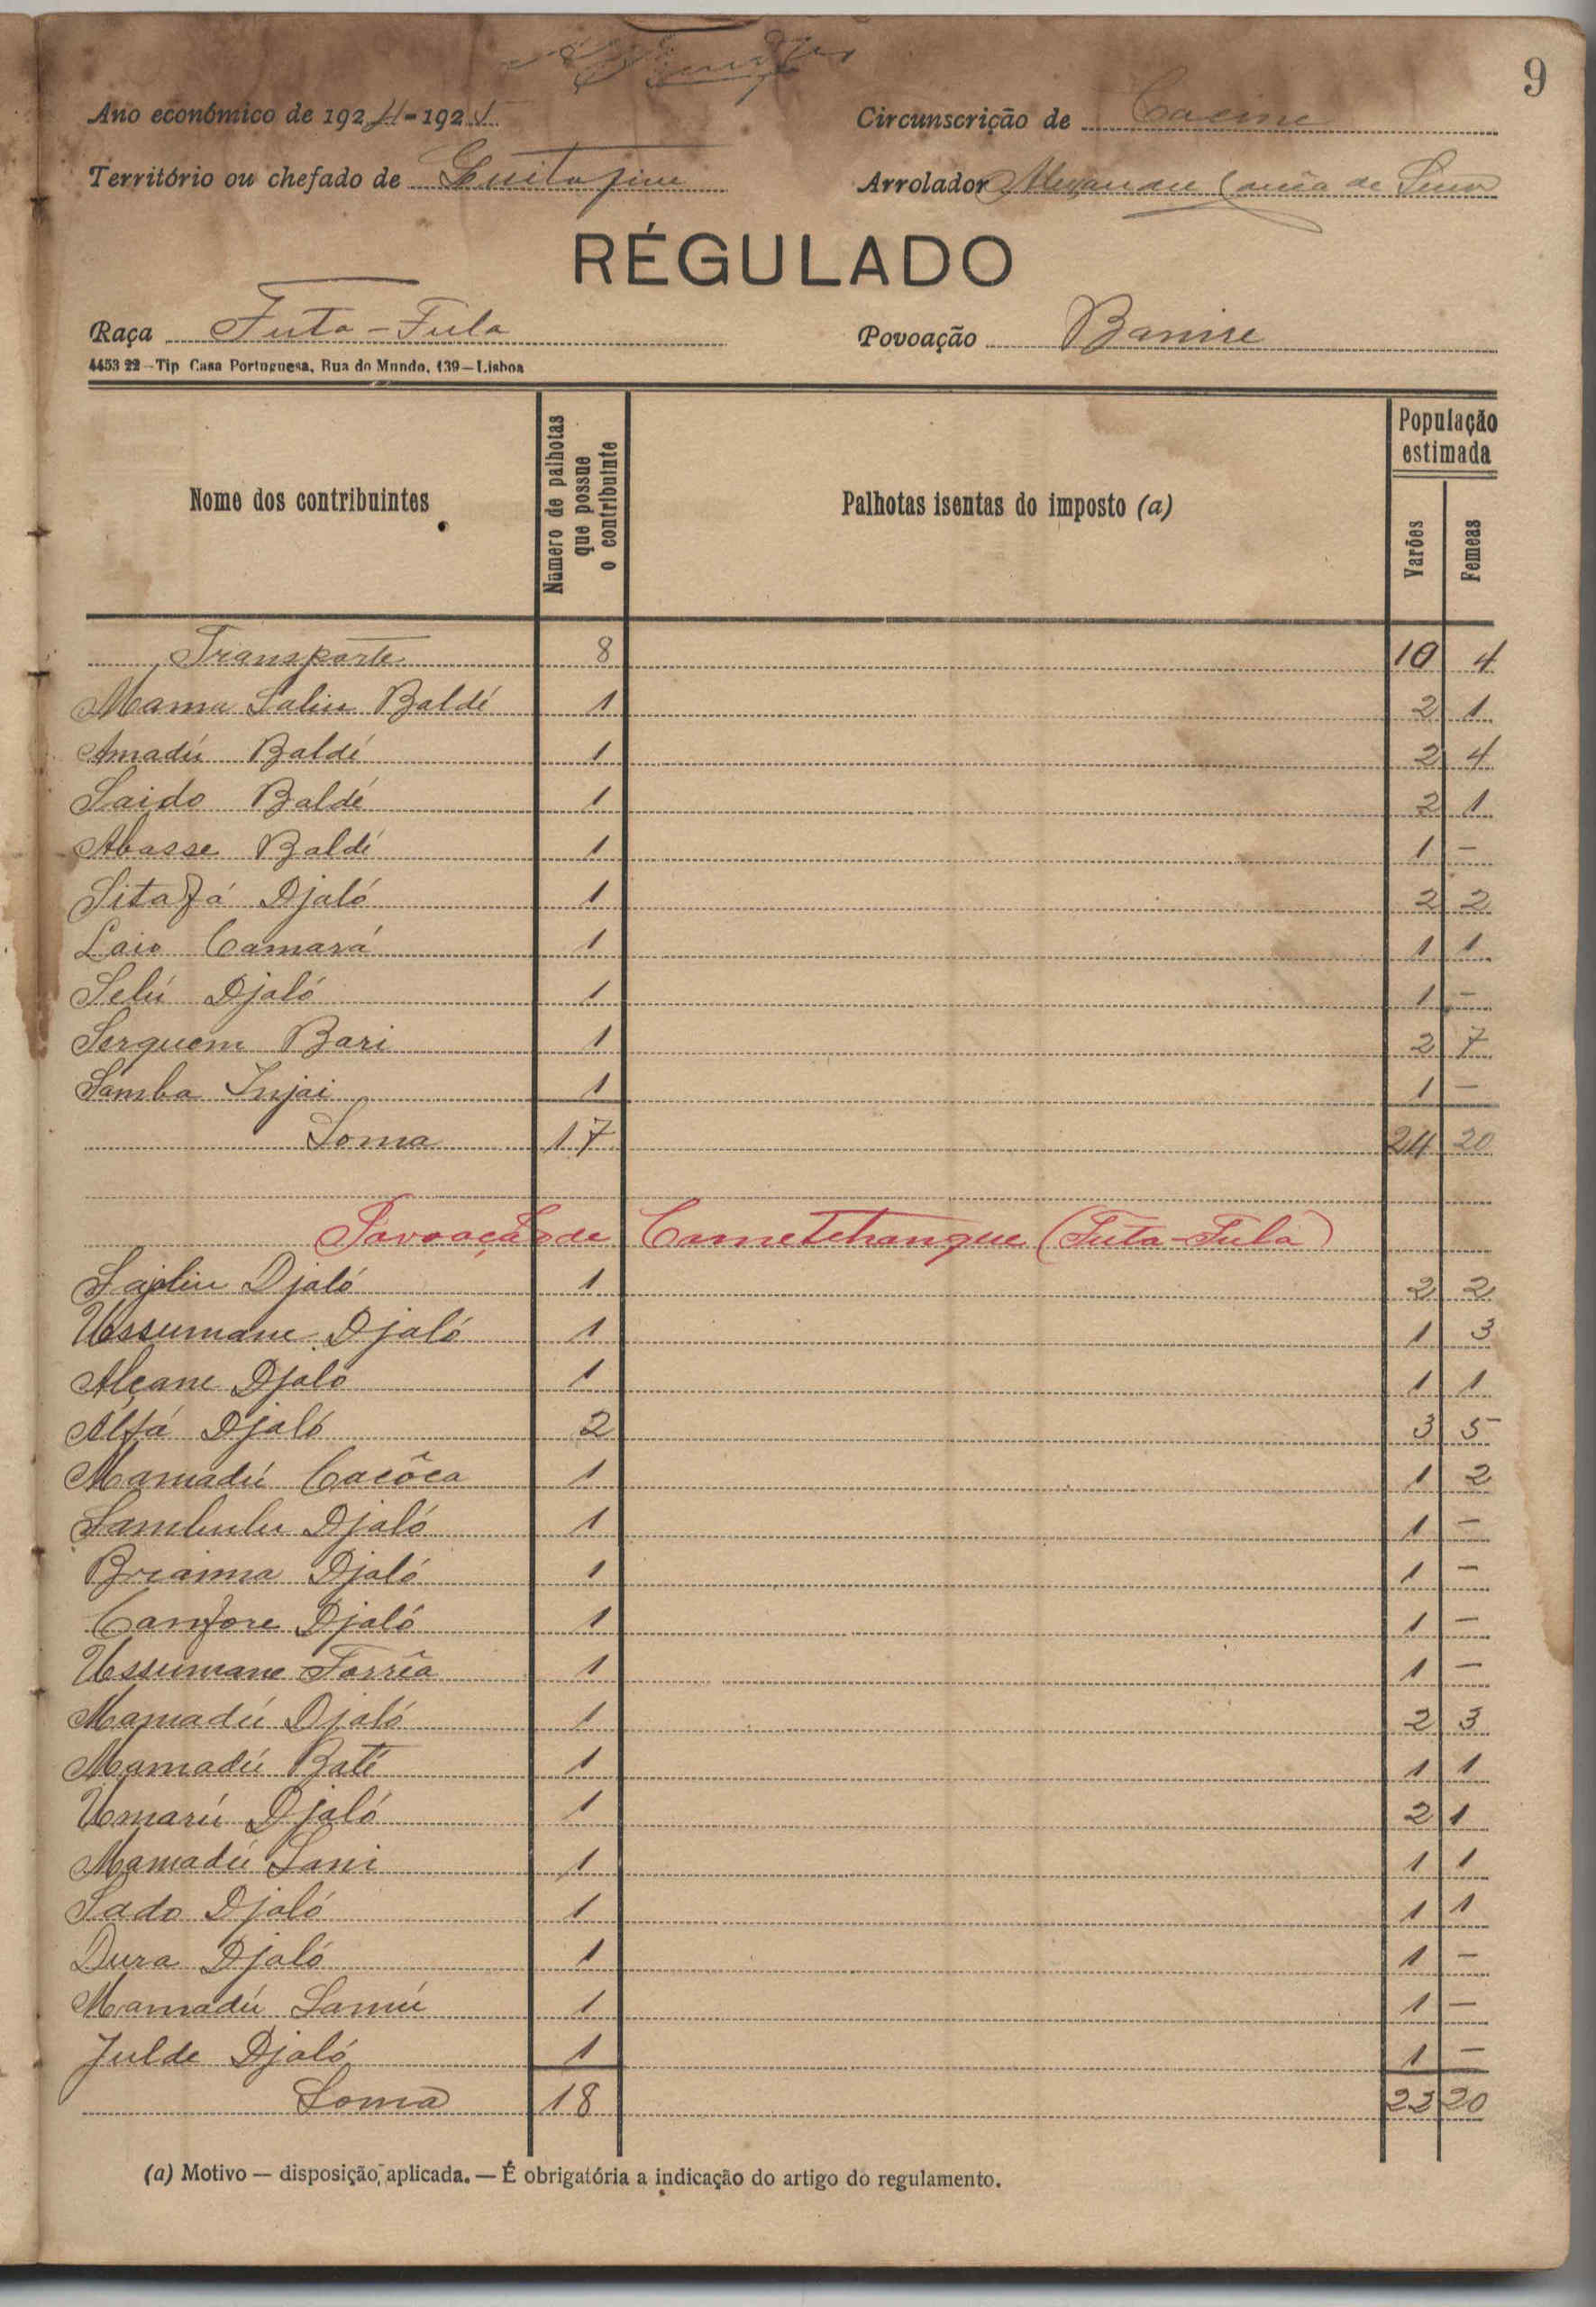 9
Ano económico de 1924-1925
Circunscrição de Cacine
Território ou chefado de Guitafine
Arrolador Alexandre Corrêa de
RÉGULADO
Raça Futa-Fula
Povoação Banire
4453 22 - Tip Casa Portuguesa, Rua do Mundo, 139 - Lisboa
Nome dos contribuintes
Número de palhotas que possue o contribuinte
Palhotas isentas do imposto (a)
População estimada
Varões
Femeas
Transporte 8 10 4
Mama Saliu Baldé 1 2 1
Amadú Baldé 1 2 4
Saido Baldé 1 2 1
Abasse Baldé 1 1 -
Sitafá Djaló 1 2 2
Laio Camará 1 1 1
Selú Djaló 1 1 -
Serquem Bari 1 2 7
Samba Injai 1 1 -
Soma 17 24 20
Povoação de Cametchangue (Futa-Fula)
Djaló 1 2 2
Ussumane Djaló 1 1 3
Alçane Djaló 1 1 1
Alfá Djaló 2 3 5
Mamadú Cacôca 1 1 2
Sambulu Djaló 1 1 -
Braima Djaló 1 1 -
Canfore Djaló 1 1 -
Ussumane Forrêa 1 1 -
Mamadú Djaló 1 2 3
Mamadú Baté 1 1 1
Umarú Djaló 1 2 1
Mamadú Sani 1 1 1
Sado Djaló 1 1 1
Dura Djaló 1 1 -
Mamadú Samú 1 1 -
Julde Djaló 1 1 -
Soma 18 22 20
(a) Motivo — disposição, aplicada. — É obrigatória a indicação do artigo do regulamento.